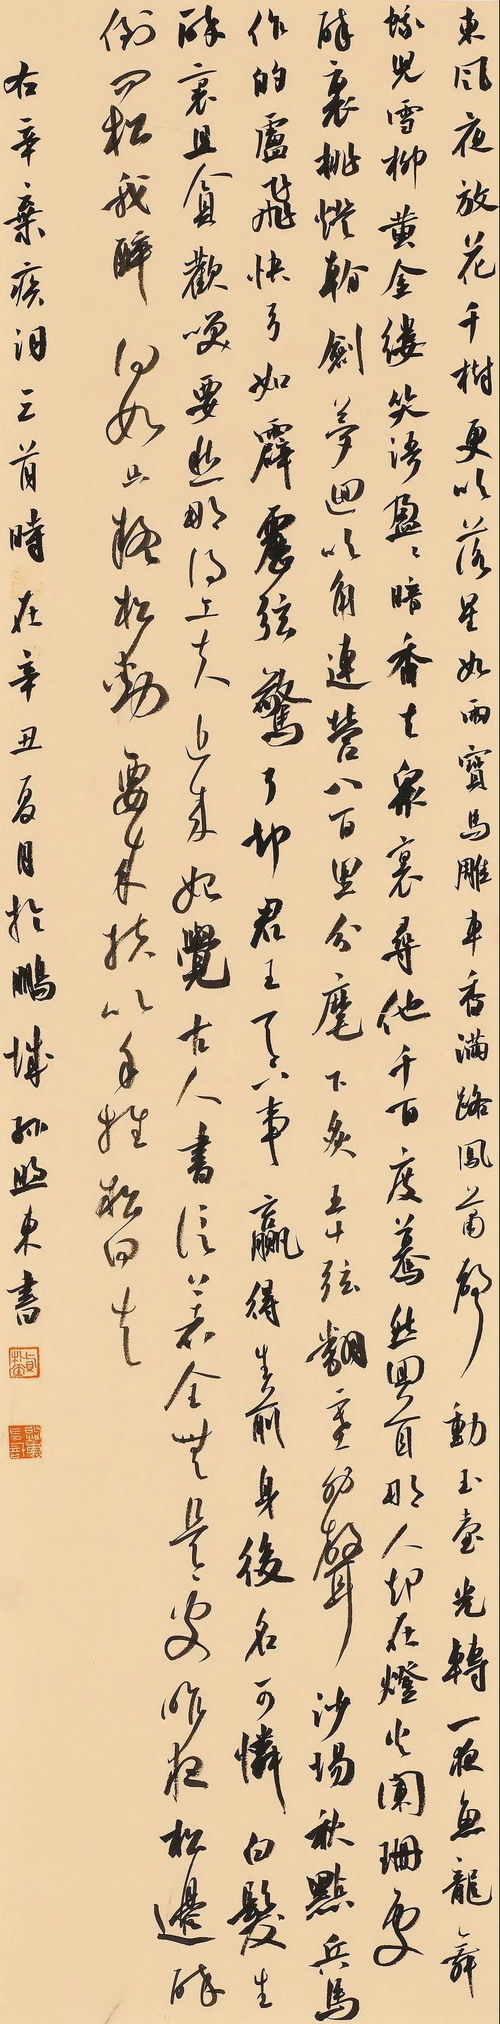 東風夜放花千樹更吹落星如雨寶馬雕車香滿路鳳簫聲動玉壺光轉一夜魚龍舞
蛾兒雪柳黃金縷笑語盈〻暗香去眾裏尋他千百度驀然回首那人却在燈火闌珊處
醉裏挑燈看劍夢迴吹角連營八百里分麾下炙五十弦翻塞外聲沙場秋點兵馬
作的盧飛快弓如霹靂弦驚了却君王天下事贏得生前身後名可憐白髮生
醉裏且貪歡笑要愁那得工夫近來始覺古人書信著全無是處昨夜松邊醉
倒問松我醉何如只疑松動要來扶以手推松曰去
右辛棄疾詞三首時在辛丑夏月於鵬城孫照東書